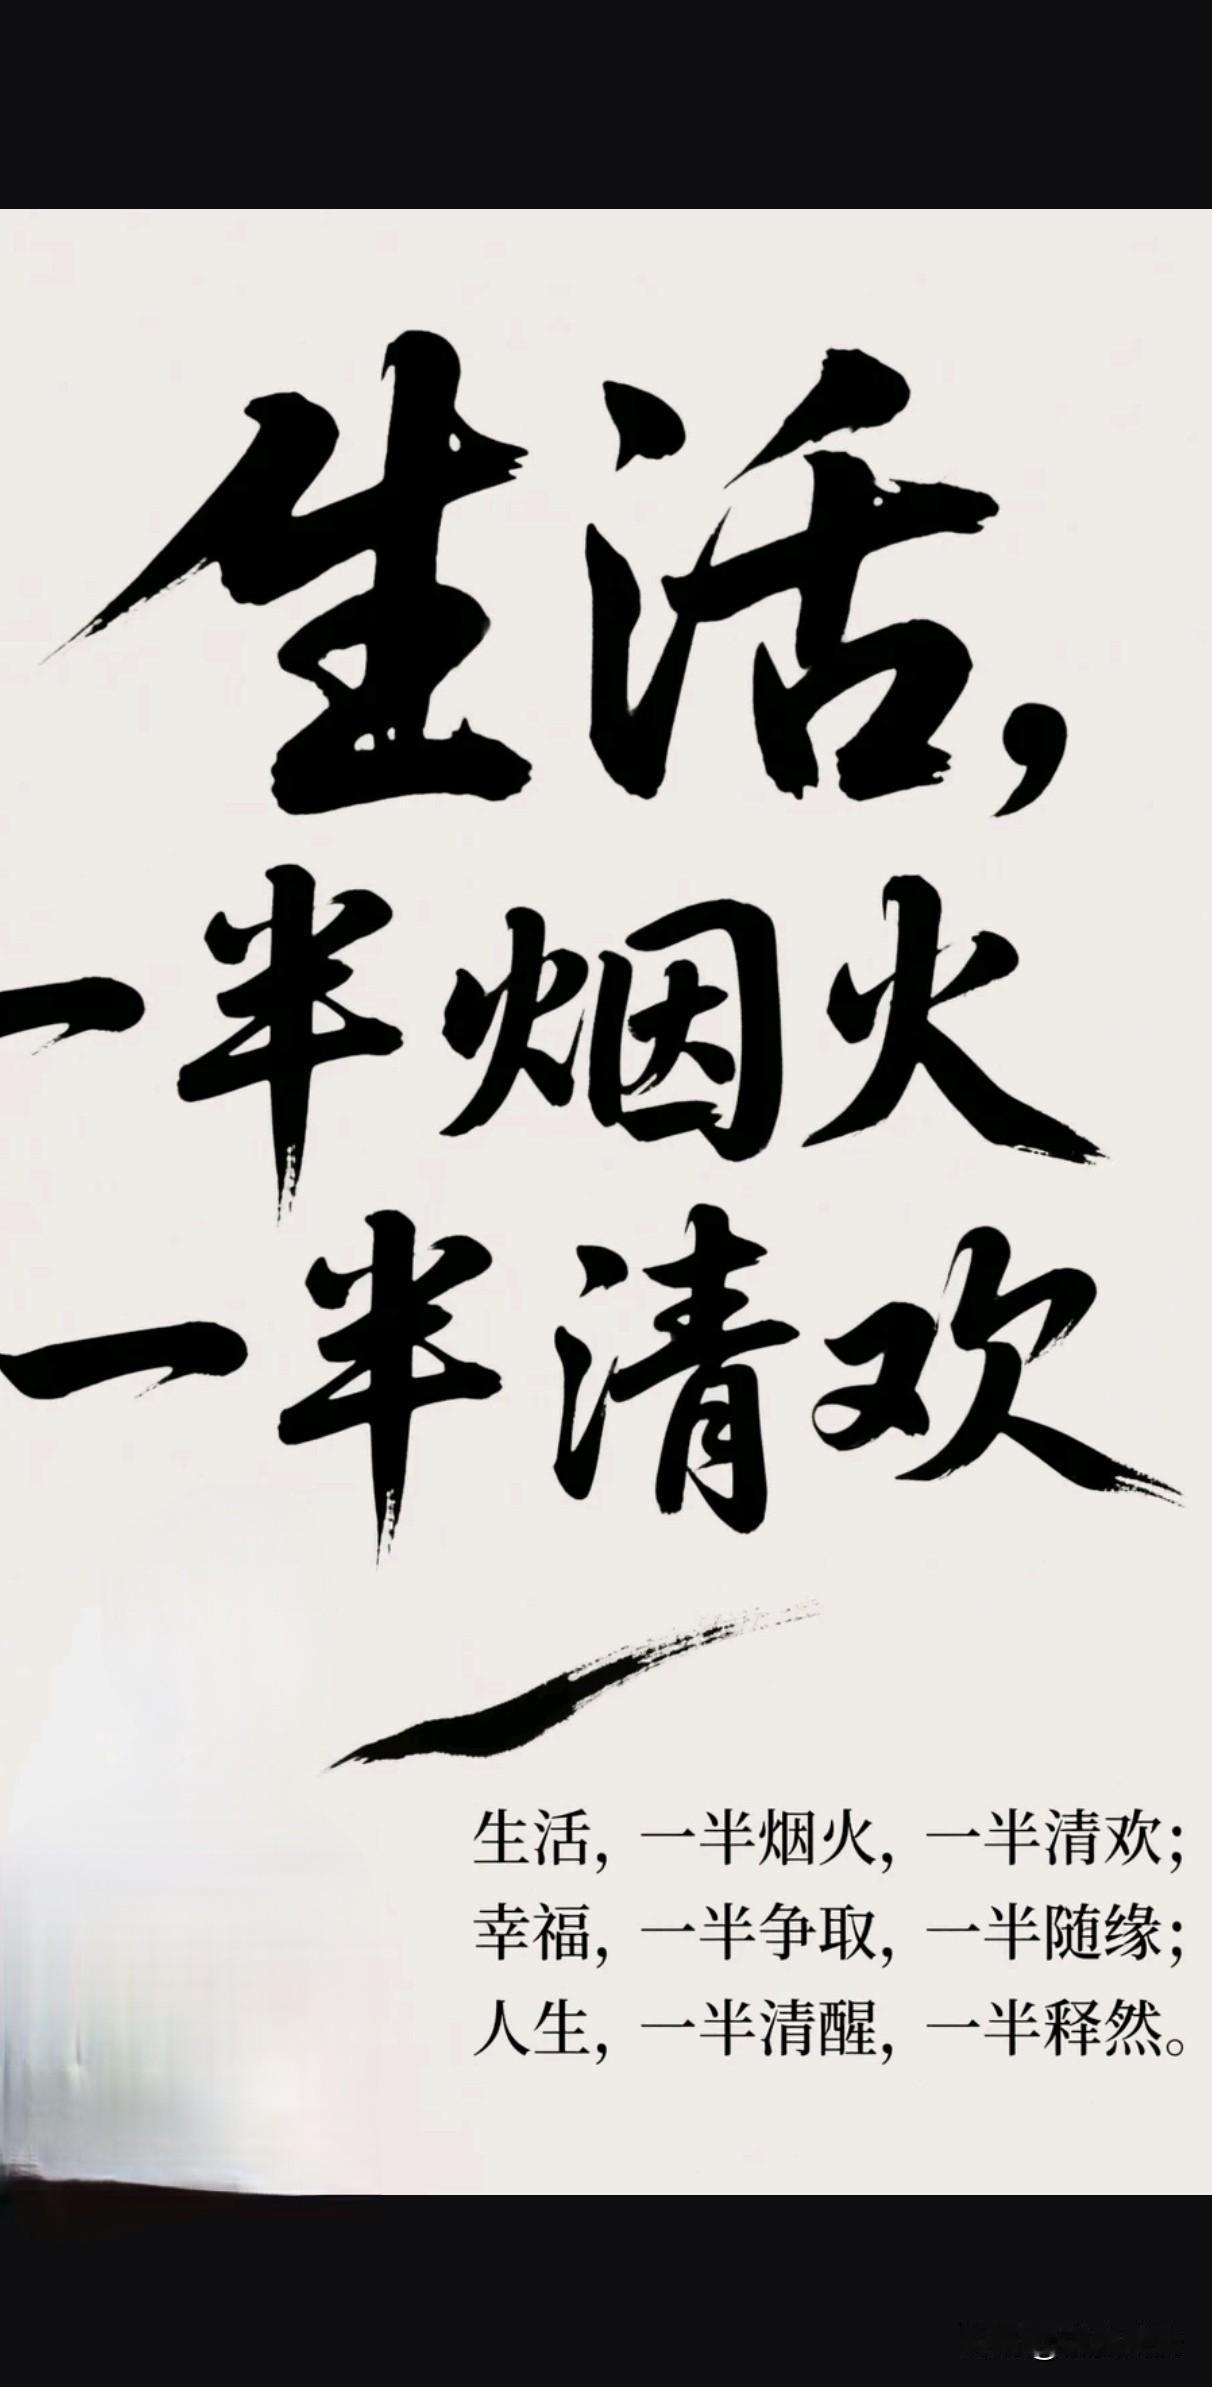 生活,
一半烟火
一半清欢
生活，一半烟火，一半清欢；
幸福，一半争取，一半随缘；
人生，一半清醒，一半释然。